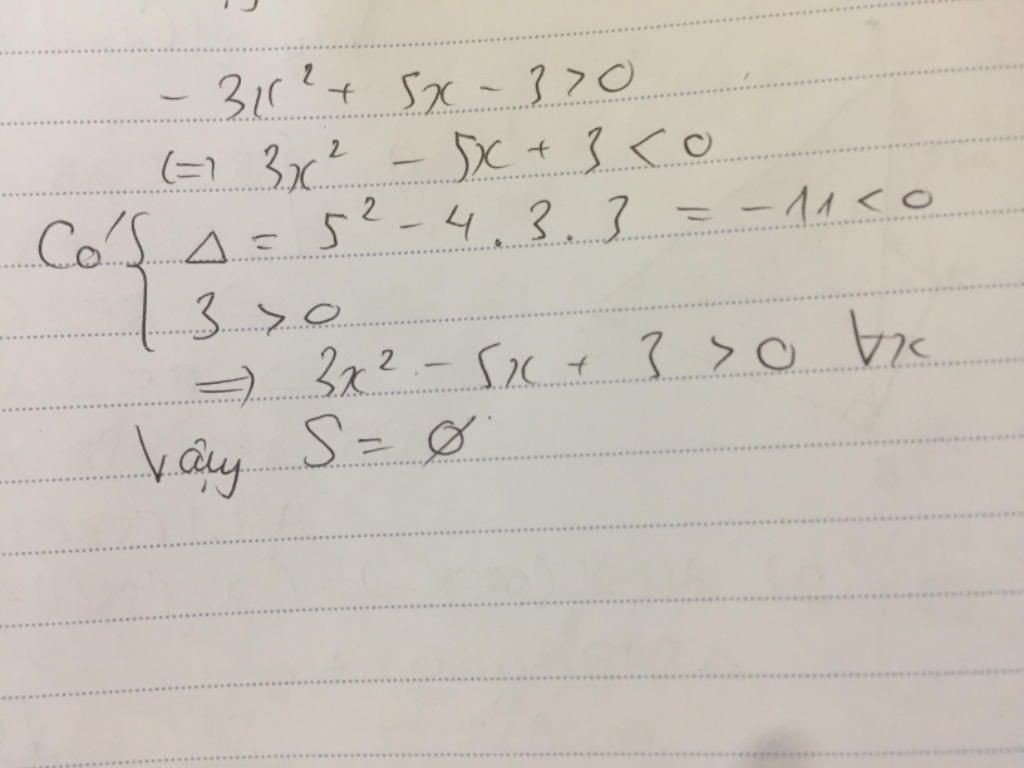 - 3x² + 5x - 3 > 0
(=) 3x² - 5x + 3 < 0
Có { Δ = 5² - 4 . 3 . 3 = -11 < 0
3 > 0
=) 3x² - 5x + 3 > 0 ∀x
Vậy S = Ø